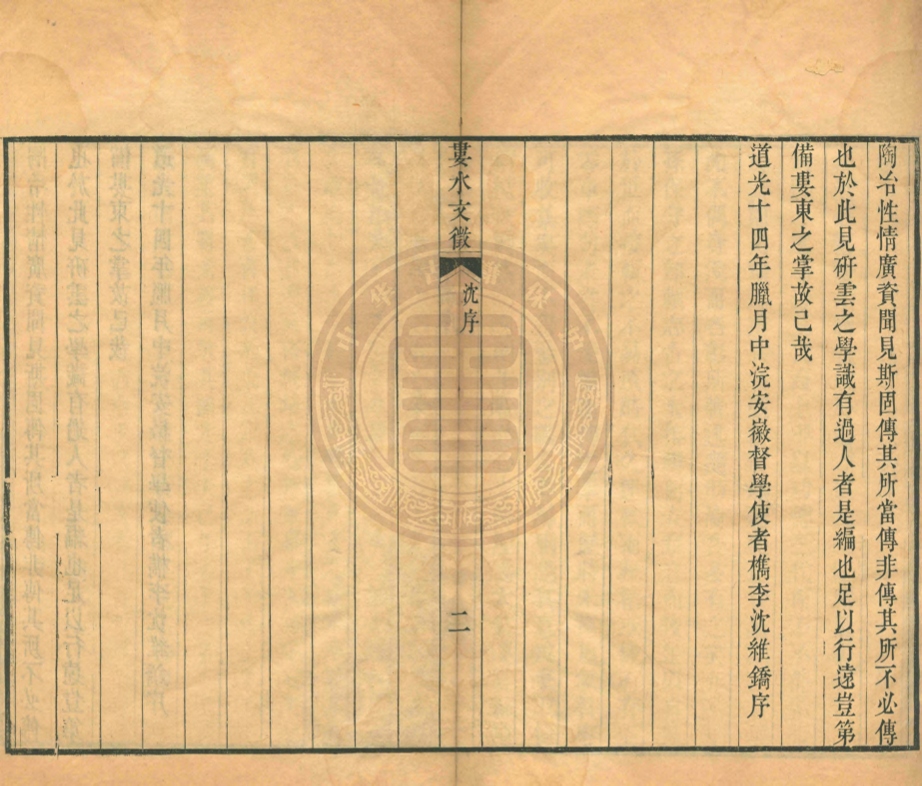 陶冶性情廣資聞見斯固傳其所當傳非傳其所不必傳
也於此見硏雲之學識有過人者是編也足以行遠豈第
備婁東之掌故已哉
道光十四年臘月中浣安徽督學使者檇李沈維鐈序
婁水文徵
沈序
二